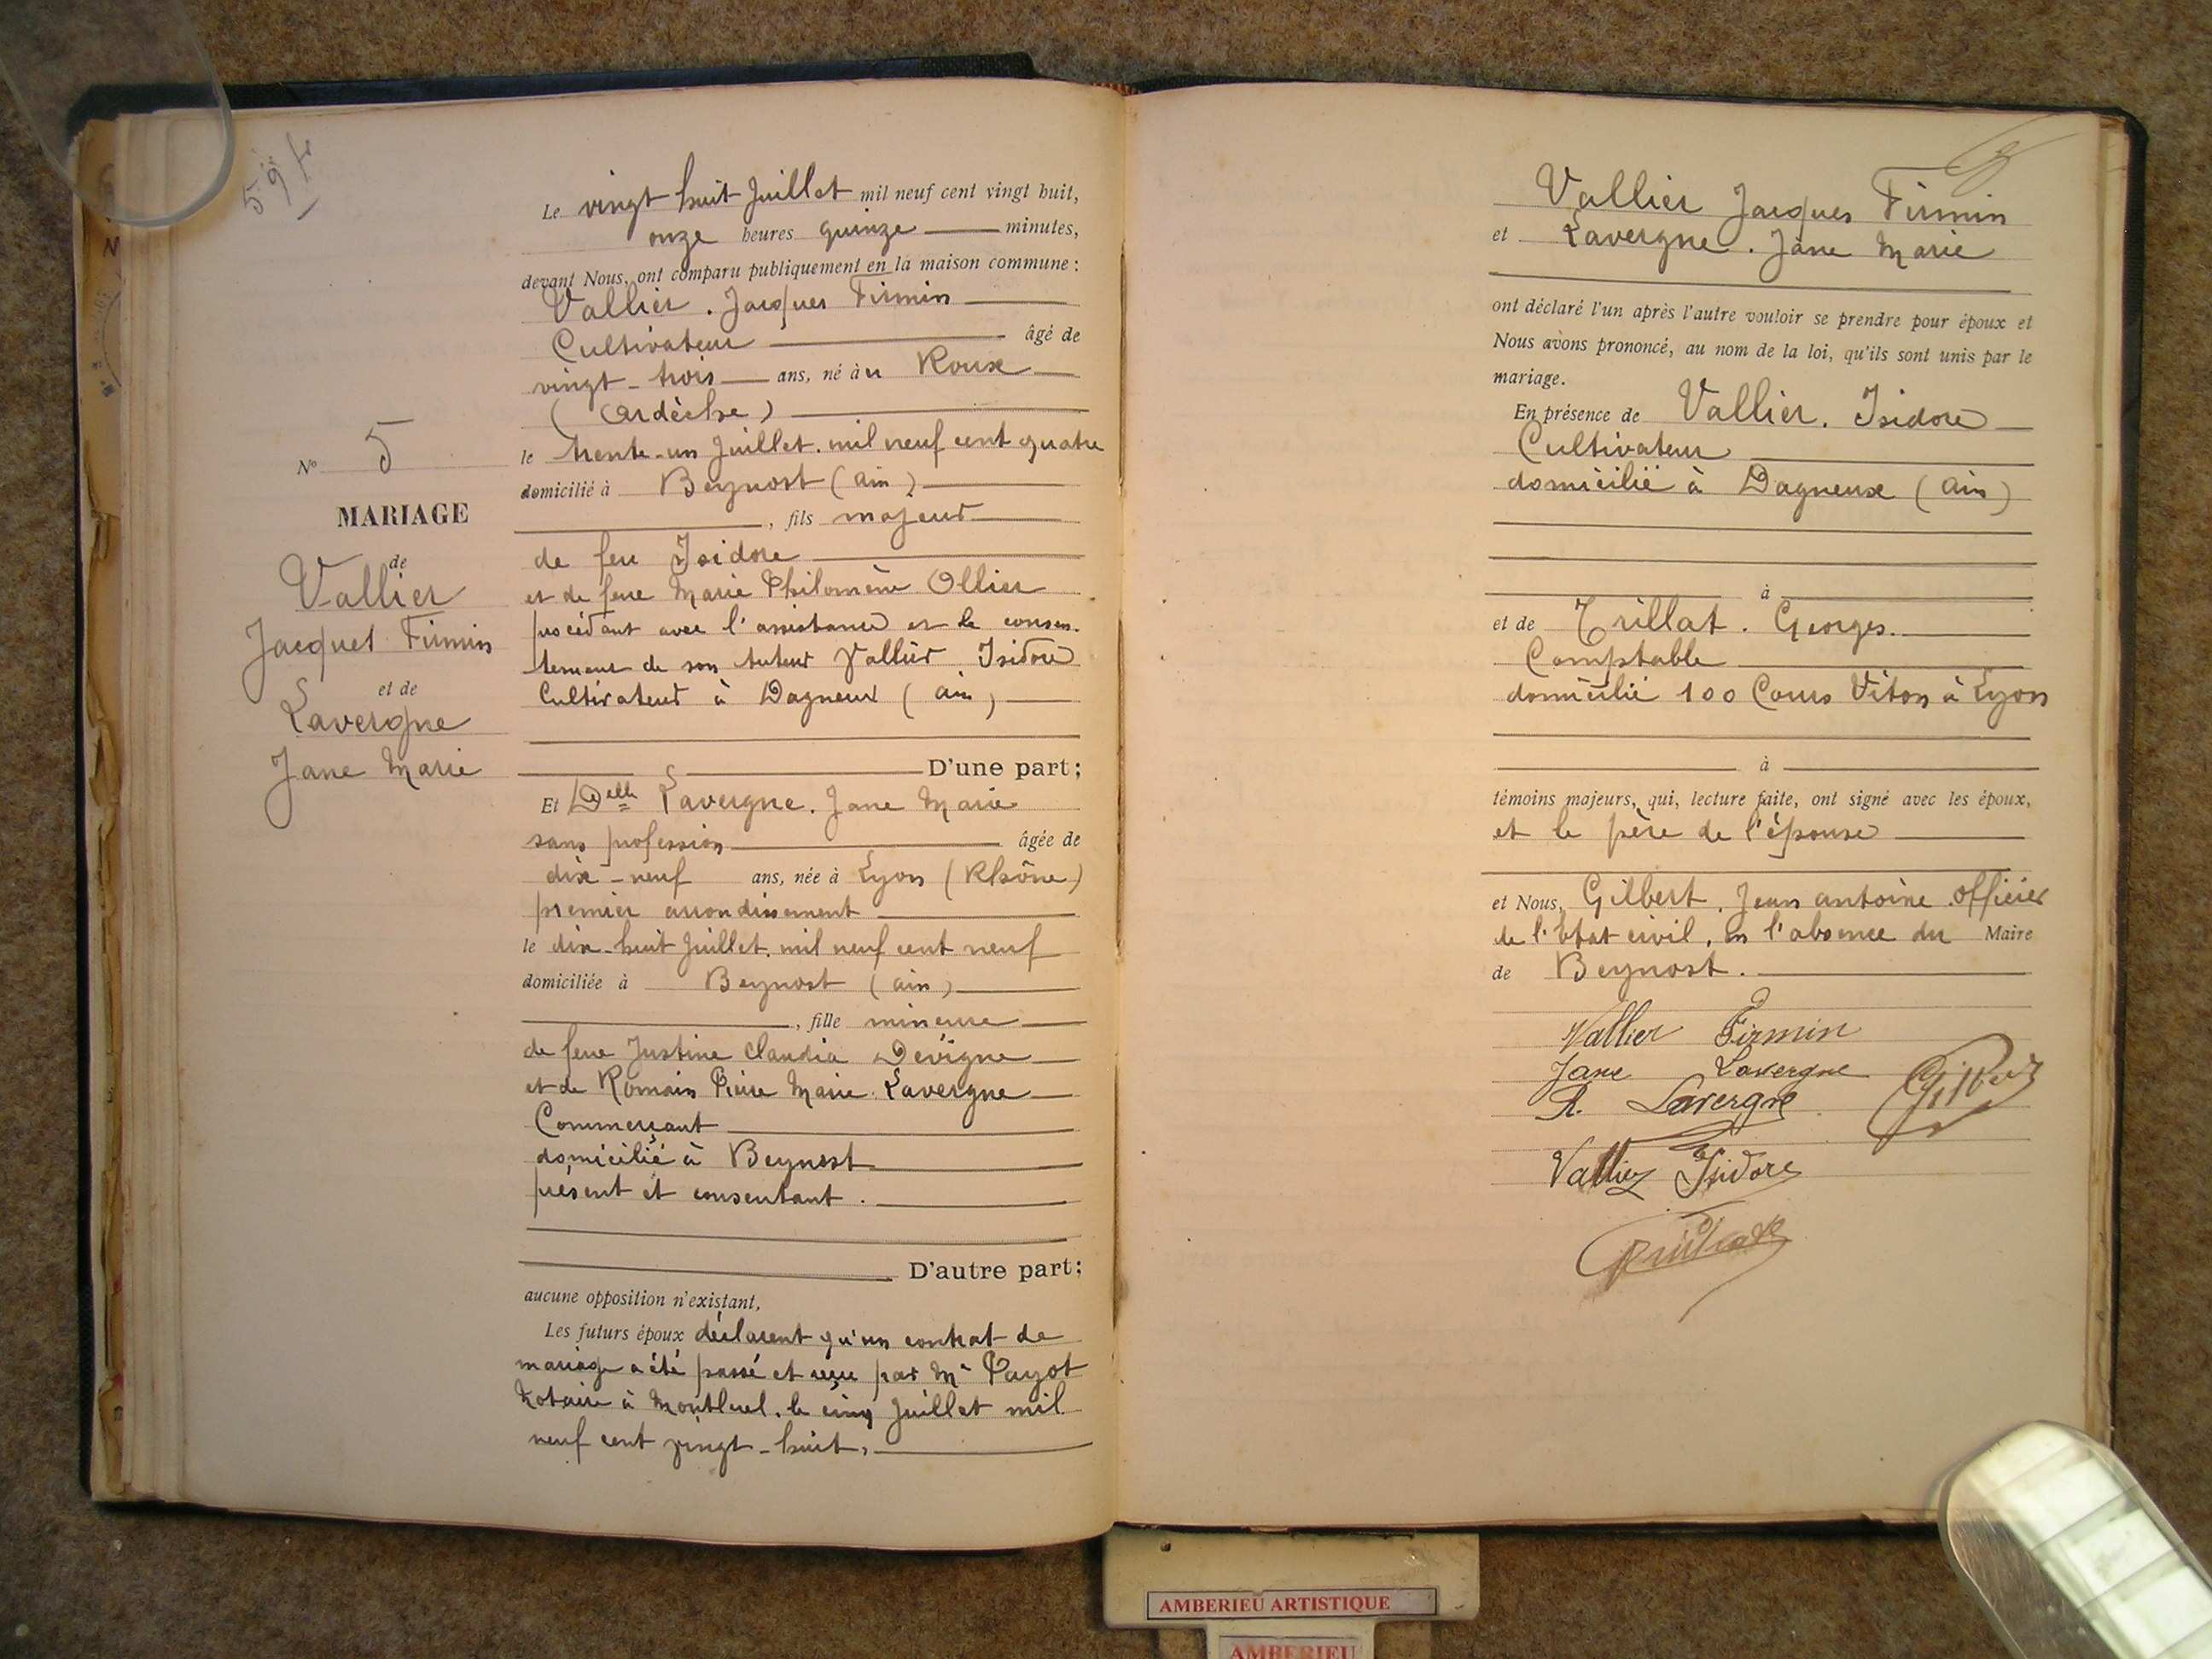 Le vingt huit Juillet mil neuf cent vingt huit,
onze heures quinze minutes,
devant Nous, ont comparu publiquement en la maison commune :
Vallier. Jacques Firmin
Cultivateur âgé de
vingt-trois ans, né àu Roux
(Ardèche)
le trente-un Juillet. mil neuf cent quatre
domicilié à Beynost (Ain)
, fils majeur
de feu Isidore
et de feue Marie Philomène Ollier
procédant avec l'assistance et le consen-
tement de son tuteur Vallier Isidore
Cultivateur à Dagneux (Ain)
D'une part ;
N° 5
MARIAGE
de
Vallier
Jacques Firmin
et de
Lavergne
Jane Marie
Et Delle Lavergne. Jane Marie
sans profession âgée de
dix-neuf ans, née à Lyon (Rhône)
premier arrondissement
le dix-huit Juillet. mil neuf cent neuf
domiciliée à Beynost (Ain)
, fille mineure
de feue Justine Claudia Devigne
et de Romain Pierre Marie Lavergne
Commerçant
domicilié à Beynost
présent et consentant.
D'autre part ;
aucune opposition n'existant,
Les futurs époux déclarent qu'un contrat de
mariage a été passé et reçu par Me Payot
Notaire à Montluel, le cinq Juillet mil
neuf cent vingt-huit,
Vallier Jacques Firmin
et Lavergne. Jane Marie
ont déclaré l'un après l'autre vouloir se prendre pour époux et
Nous avons prononcé, au nom de la loi, qu'ils sont unis par le
mariage.
En présence de Vallier. Isidore
Cultivateur
domicilié à Dagneux (Ain)
à
et de Trillat. Georges.
Comptable
domicilié 100 Cours Viton à Lyon
à
témoins majeurs, qui, lecture faite, ont signé avec les époux,
et le père de l'épouse
et Nous, Gilbert. Jean Antoine officier
de l'Etat civil, en l'absence du Maire
de Beynost.
Vallier Firmin
Jane Lavergne
R. Lavergne Gilbert
Vallier Isidore
AMBERIEU ARTISTIQUE
AMBERIEU